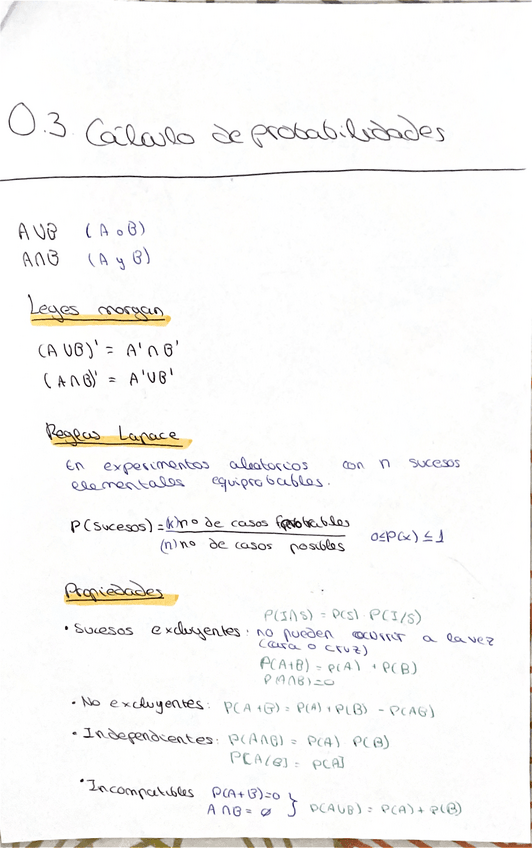 0.3. Cálculo de probabilidades
A∪B (A o B)
A∩B (A y B)
Leyes morgan
(A∪B)' = A'∩B'
(A∩B)' = A'∪B'
Reglas Lapace
En experimentos aleatorios con n sucesos
elementales equiprobables.
P(sucesos) = (k) nº de casos favorables
(n) nº de casos posibles
0≤P(x)≤1
Propiedades
P(I∩S) = P(S) · P(I/S)
• Sucesos excluyentes: no pueden ocurrir a la vez
(cara o cruz)
P(A+B) = P(A) + P(B)
P(A∩B)=0
• No excluyentes: P(A+B) = P(A) + P(B) - P(AB)
• Independientes: P(A∩B) = P(A) · P(B)
P[A/B] = P[A]
• Incompatibles P(A+B)=0
A∩B = ∅ } P(A∪B) = P(A) + P(B)